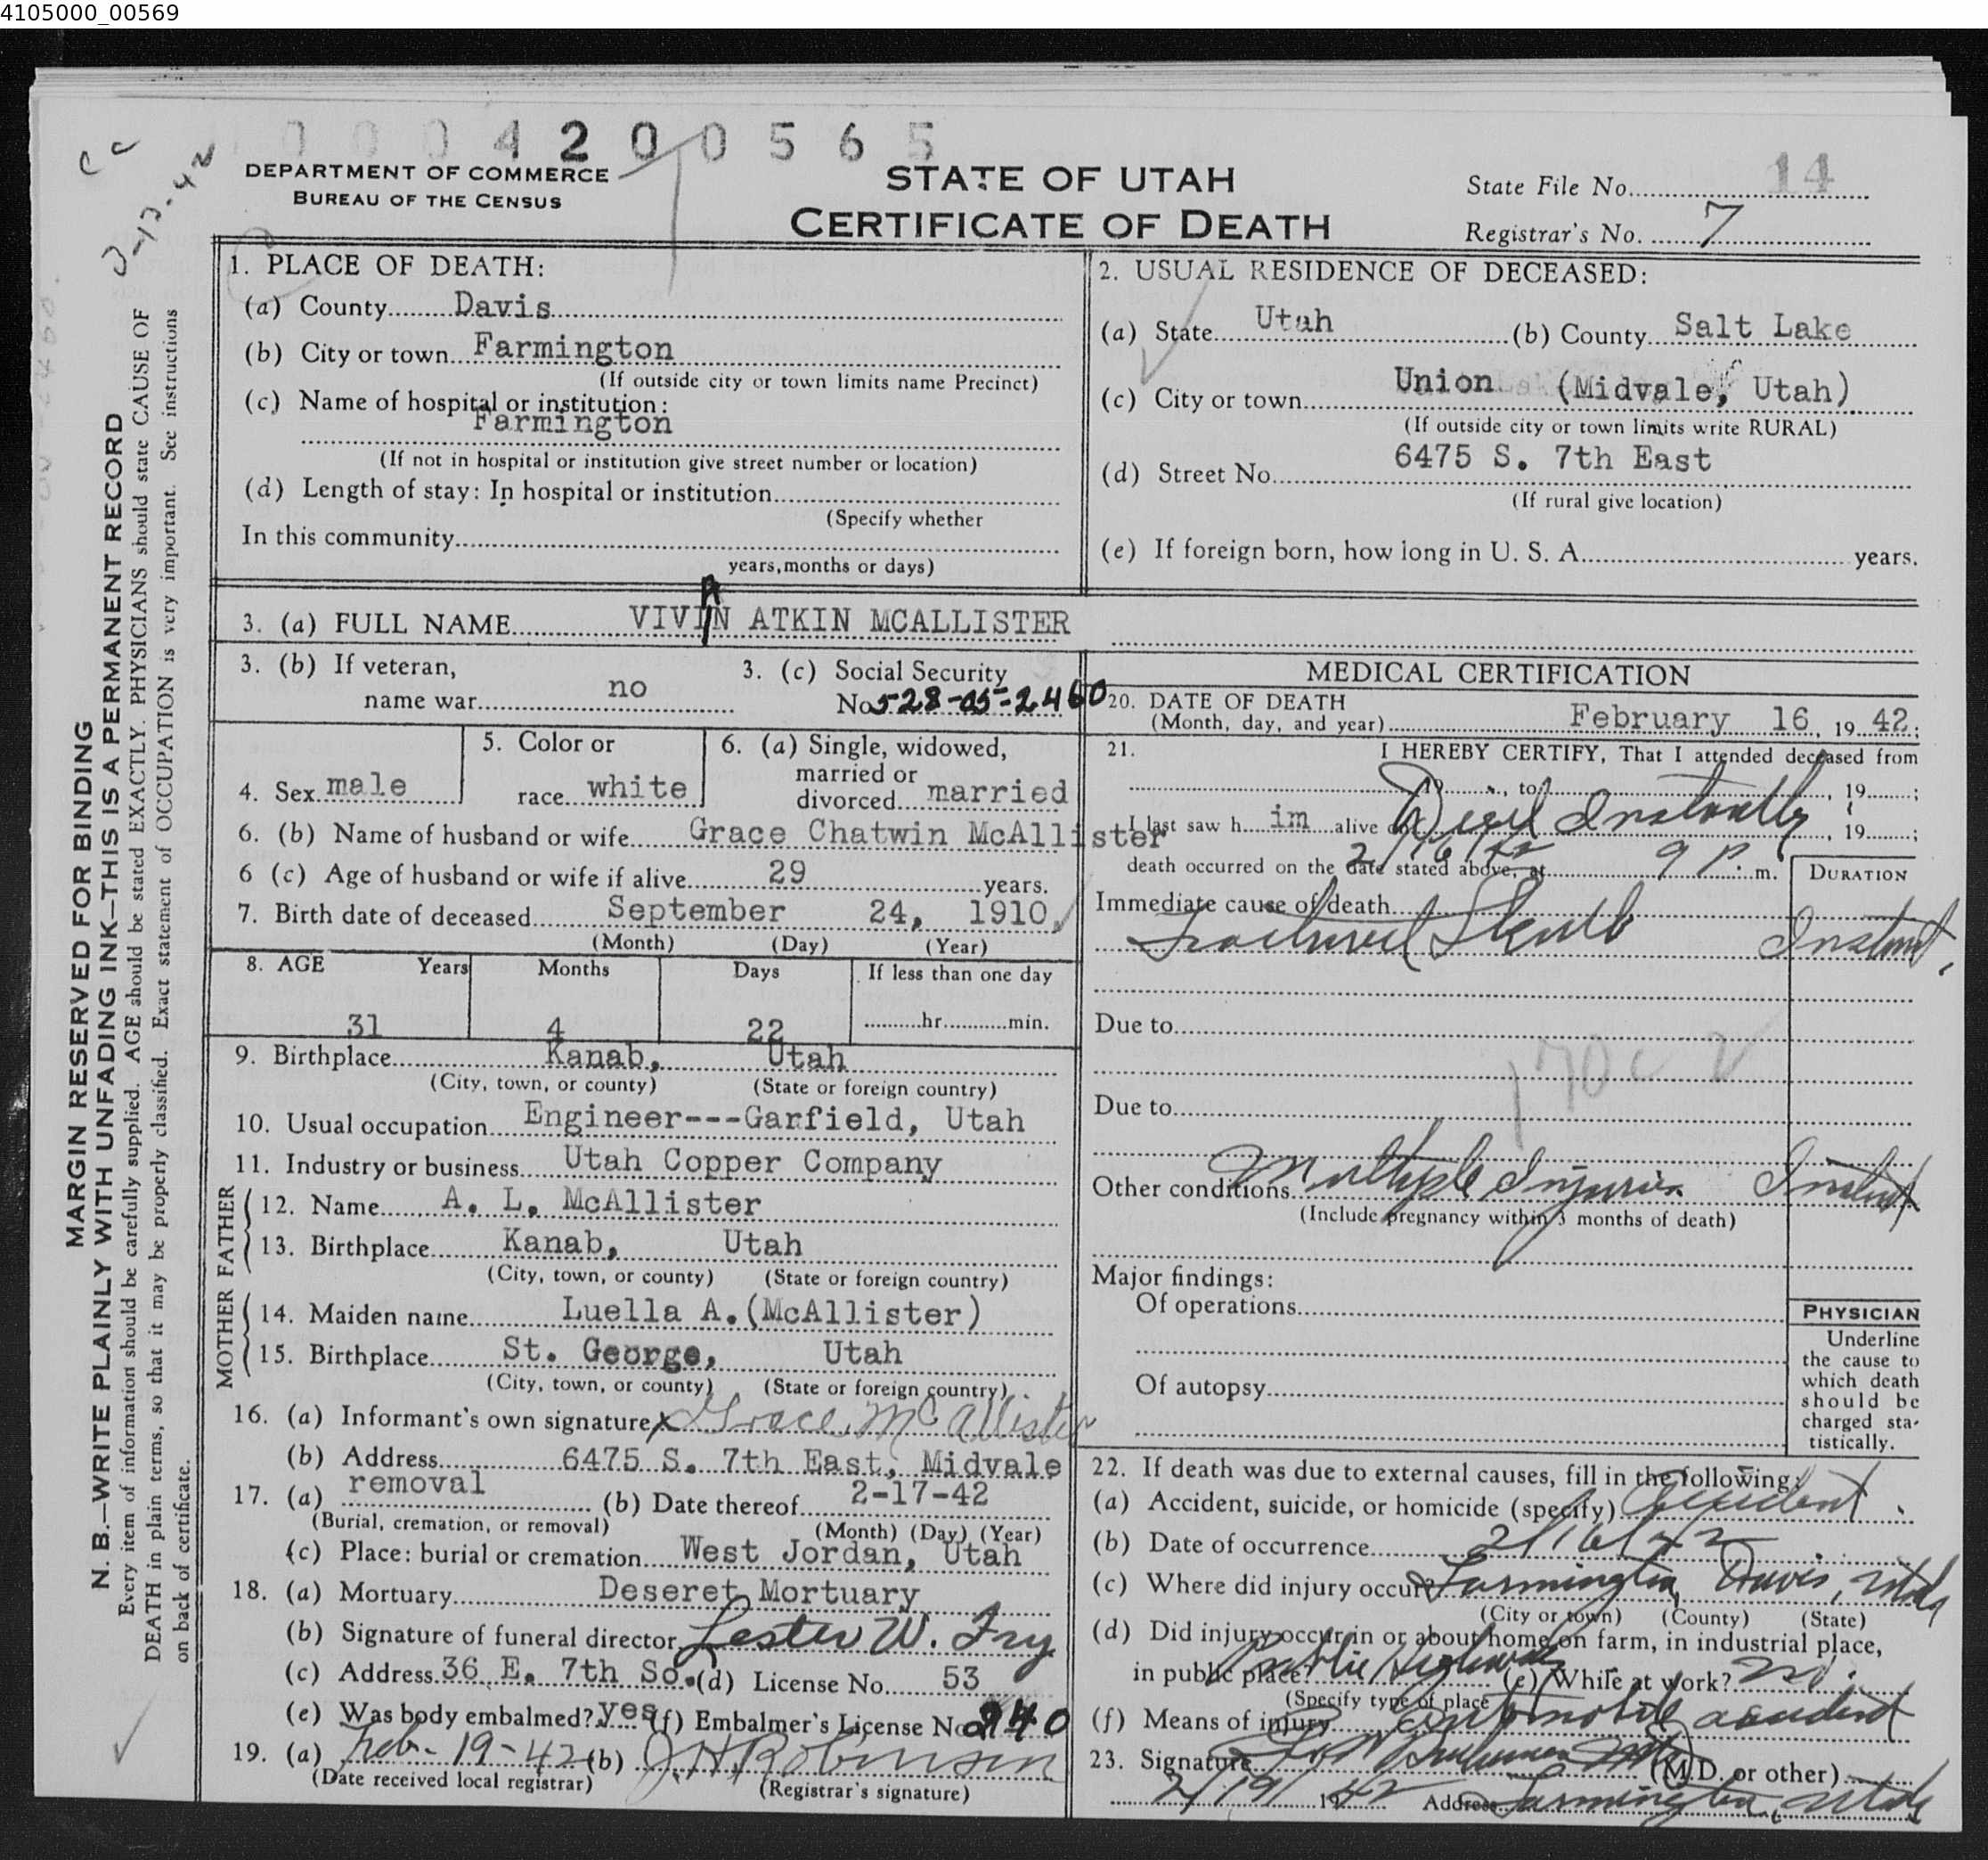 4105000_00569
0004200565
DEPARTMENT OF COMMERCE
BUREAU OF THE CENSUS
STATE OF UTAH
CERTIFICATE OF DEATH
State File No. 14
Registrar's No. 7
1. PLACE OF DEATH:
(a) County Davis
(b) City or town Farmington
(If outside city or town limits name Precinct)
(c) Name of hospital or institution:
Farmington
(If not in hospital or institution give street number or location)
(d) Length of stay: In hospital or institution
(Specify whether
In this community
years, months or days)
2. USUAL RESIDENCE OF DECEASED:
(a) State Utah (b) County Salt Lake
(c) City or town Union (Midvale, Utah)
(If outside city or town limits write RURAL)
(d) Street No. 6475 S. 7th East
(If rural give location)
(e) If foreign born, how long in U. S. A. years.
3. (a) FULL NAME VIVAN ATKIN MCALLISTER
3. (b) If veteran,
name war no
3. (c) Social Security
No. 528-05-2460
4. Sex male
5. Color or
race white
6. (a) Single, widowed,
married or
divorced married
6. (b) Name of husband or wife Grace Chatwin McAllister
6 (c) Age of husband or wife if alive 29 years.
7. Birth date of deceased September 24, 1910
(Month) (Day) (Year)
8. AGE Years Months Days If less than one day
31 4 22 hr. min.
9. Birthplace Kanab, Utah
(City, town, or county) (State or foreign country)
10. Usual occupation Engineer---Garfield, Utah
11. Industry or business Utah Copper Company
FATHER
12. Name A. L. McAllister
13. Birthplace Kanab, Utah
(City, town, or county) (State or foreign country)
MOTHER
14. Maiden name Luella A. (McAllister)
15. Birthplace St. George, Utah
(City, town, or county) (State or foreign country)
16. (a) Informant's own signature x Grace McAllister
(b) Address 6475 S. 7th East, Midvale
17. (a) removal (b) Date thereof 2-17-42
(Burial, cremation, or removal) (Month) (Day) (Year)
(c) Place: burial or cremation West Jordan, Utah
18. (a) Mortuary Deseret Mortuary
(b) Signature of funeral director Lester W. Fry
(c) Address 36 E. 7th So. (d) License No. 53
(e) Was body embalmed? yes (f) Embalmer's License No. 240
19. (a) Feb-19-42 (b) J. H. Robinson
(Date received local registrar) (Registrar's signature)
MEDICAL CERTIFICATION
20. DATE OF DEATH
(Month, day, and year) February 16, 1942;
21. I HEREBY CERTIFY, That I attended deceased from
19 , to , 19 ;
I last saw him alive on Died Instantly , 19 ;
death occurred on the date stated above, at 2/16/42 9 P. m.
DURATION
Immediate cause of death
Fractured Skull Instant,
Due to
170c
Due to
Other conditions Multiple Injuries Instant
(Include pregnancy within 3 months of death)
Major findings:
Of operations
Of autopsy
PHYSICIAN
Underline
the cause to
which death
should be
charged sta-
tistically.
22. If death was due to external causes, fill in the following:
(a) Accident, suicide, or homicide (specify) Accident.
(b) Date of occurrence 2/16/42
(c) Where did injury occur? Farmington, Davis, Utah
(City or town) (County) (State)
(d) Did injury occur in or about home, on farm, in industrial place,
in public place? Public Highway (e) While at work? no.
(Specify type of place)
(f) Means of injury Automobile accident
23. Signature (M.D. or other)
2/19/1942 Address Farmington, Utah
MARGIN RESERVED FOR BINDING
N. B.—WRITE PLAINLY WITH UNFADING INK—THIS IS A PERMANENT RECORD
Every item of information should be carefully supplied. AGE should be stated EXACTLY. PHYSICIANS should state CAUSE OF
DEATH in plain terms, so that it may be properly classified. Exact statement of OCCUPATION is very important. See instructions
on back of certificate.